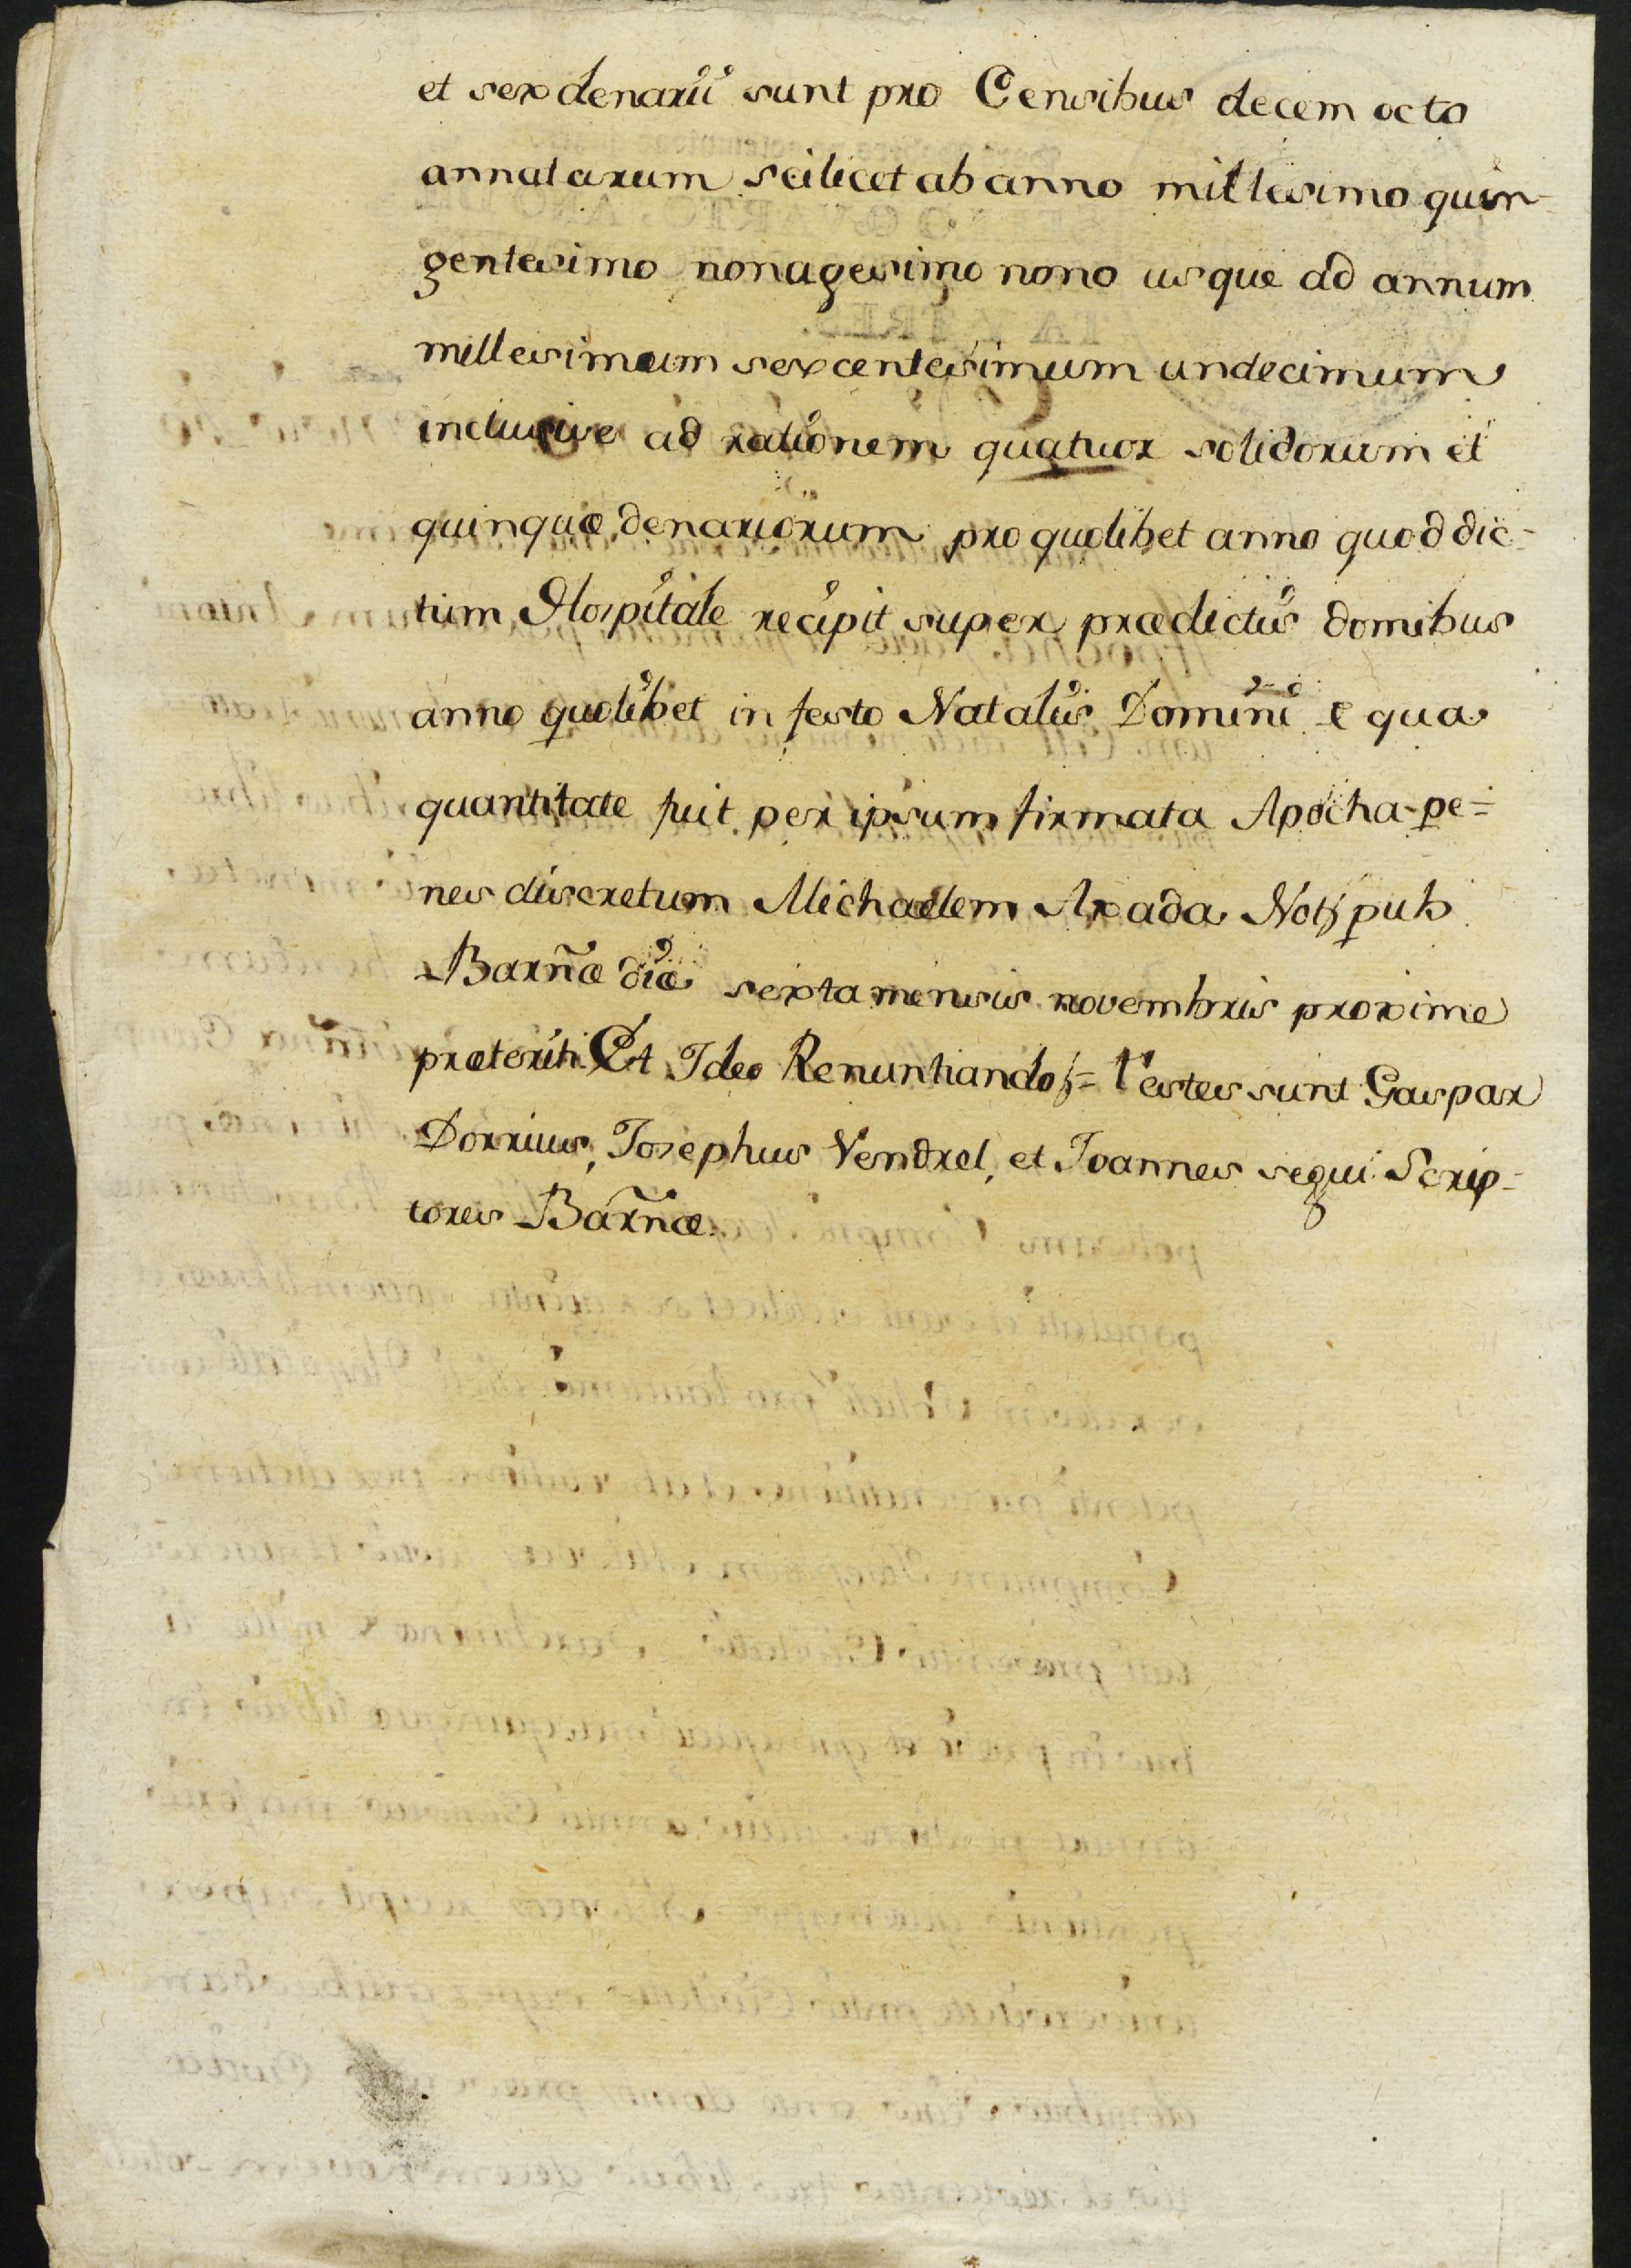 et sex denarii sunt pro Censibus decem octo
annatarum scilicet ab anno millesimo quin-
gentesimo nonagesimo nono usque ad annum
millesimum sexcentesimum undecimum
inclusive ad rationem quatuor solidorum et
quinque denariorum pro quolibet anno quod dic-
tum Hospitale recipit super prædictis domibus
anno quolibet in festo Natalis Domini e qua
quantitate fuit per ipsum firmata Apocha pe=
nes discretum Michaelem Axada Notj pub
Barñæ die sexta mensis novembris proxime
præteriti Et Ideo Renuntiando = Testes sunt Gaspar
Dorrius, Josephus Vendrel, et Joannes segui Scrip-
tores Barñæ.